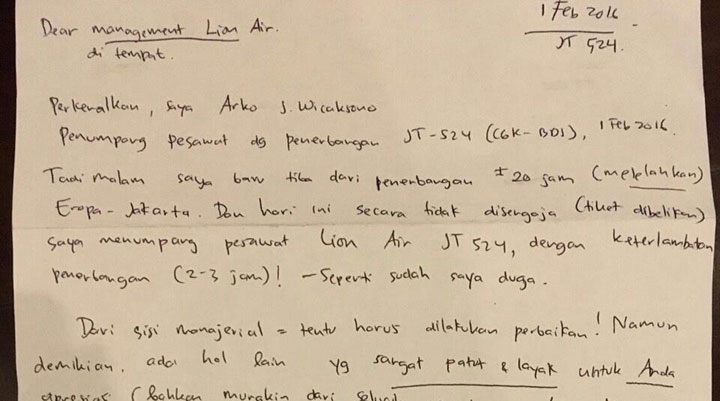 1 Feb 2016
JT 524.
Dear management Lion Air.
di tempat.
Perkenalkan, saya Arko J. Wicaksono
Penumpang pesawat dg penerbangan JT-524 (CGK-BDJ), 1 Feb 2016.
Tadi malam saya baru tiba dari penerbangan ± 20 jam (melelahkan)
Eropa - Jakarta. Dan hari ini secara tidak disengaja (tiket dibelikan)
saya menumpang pesawat Lion Air JT 524, dengan keterlambatan
penerbangan (2-3 jam)! - Seperti sudah saya duga.
Dari sisi manajerial = tentu harus dilakukan perbaikan! Namun
demikian, ada hal lain yg sangat patut & layak untuk Anda
apresiasi (bahkan mungkin dari